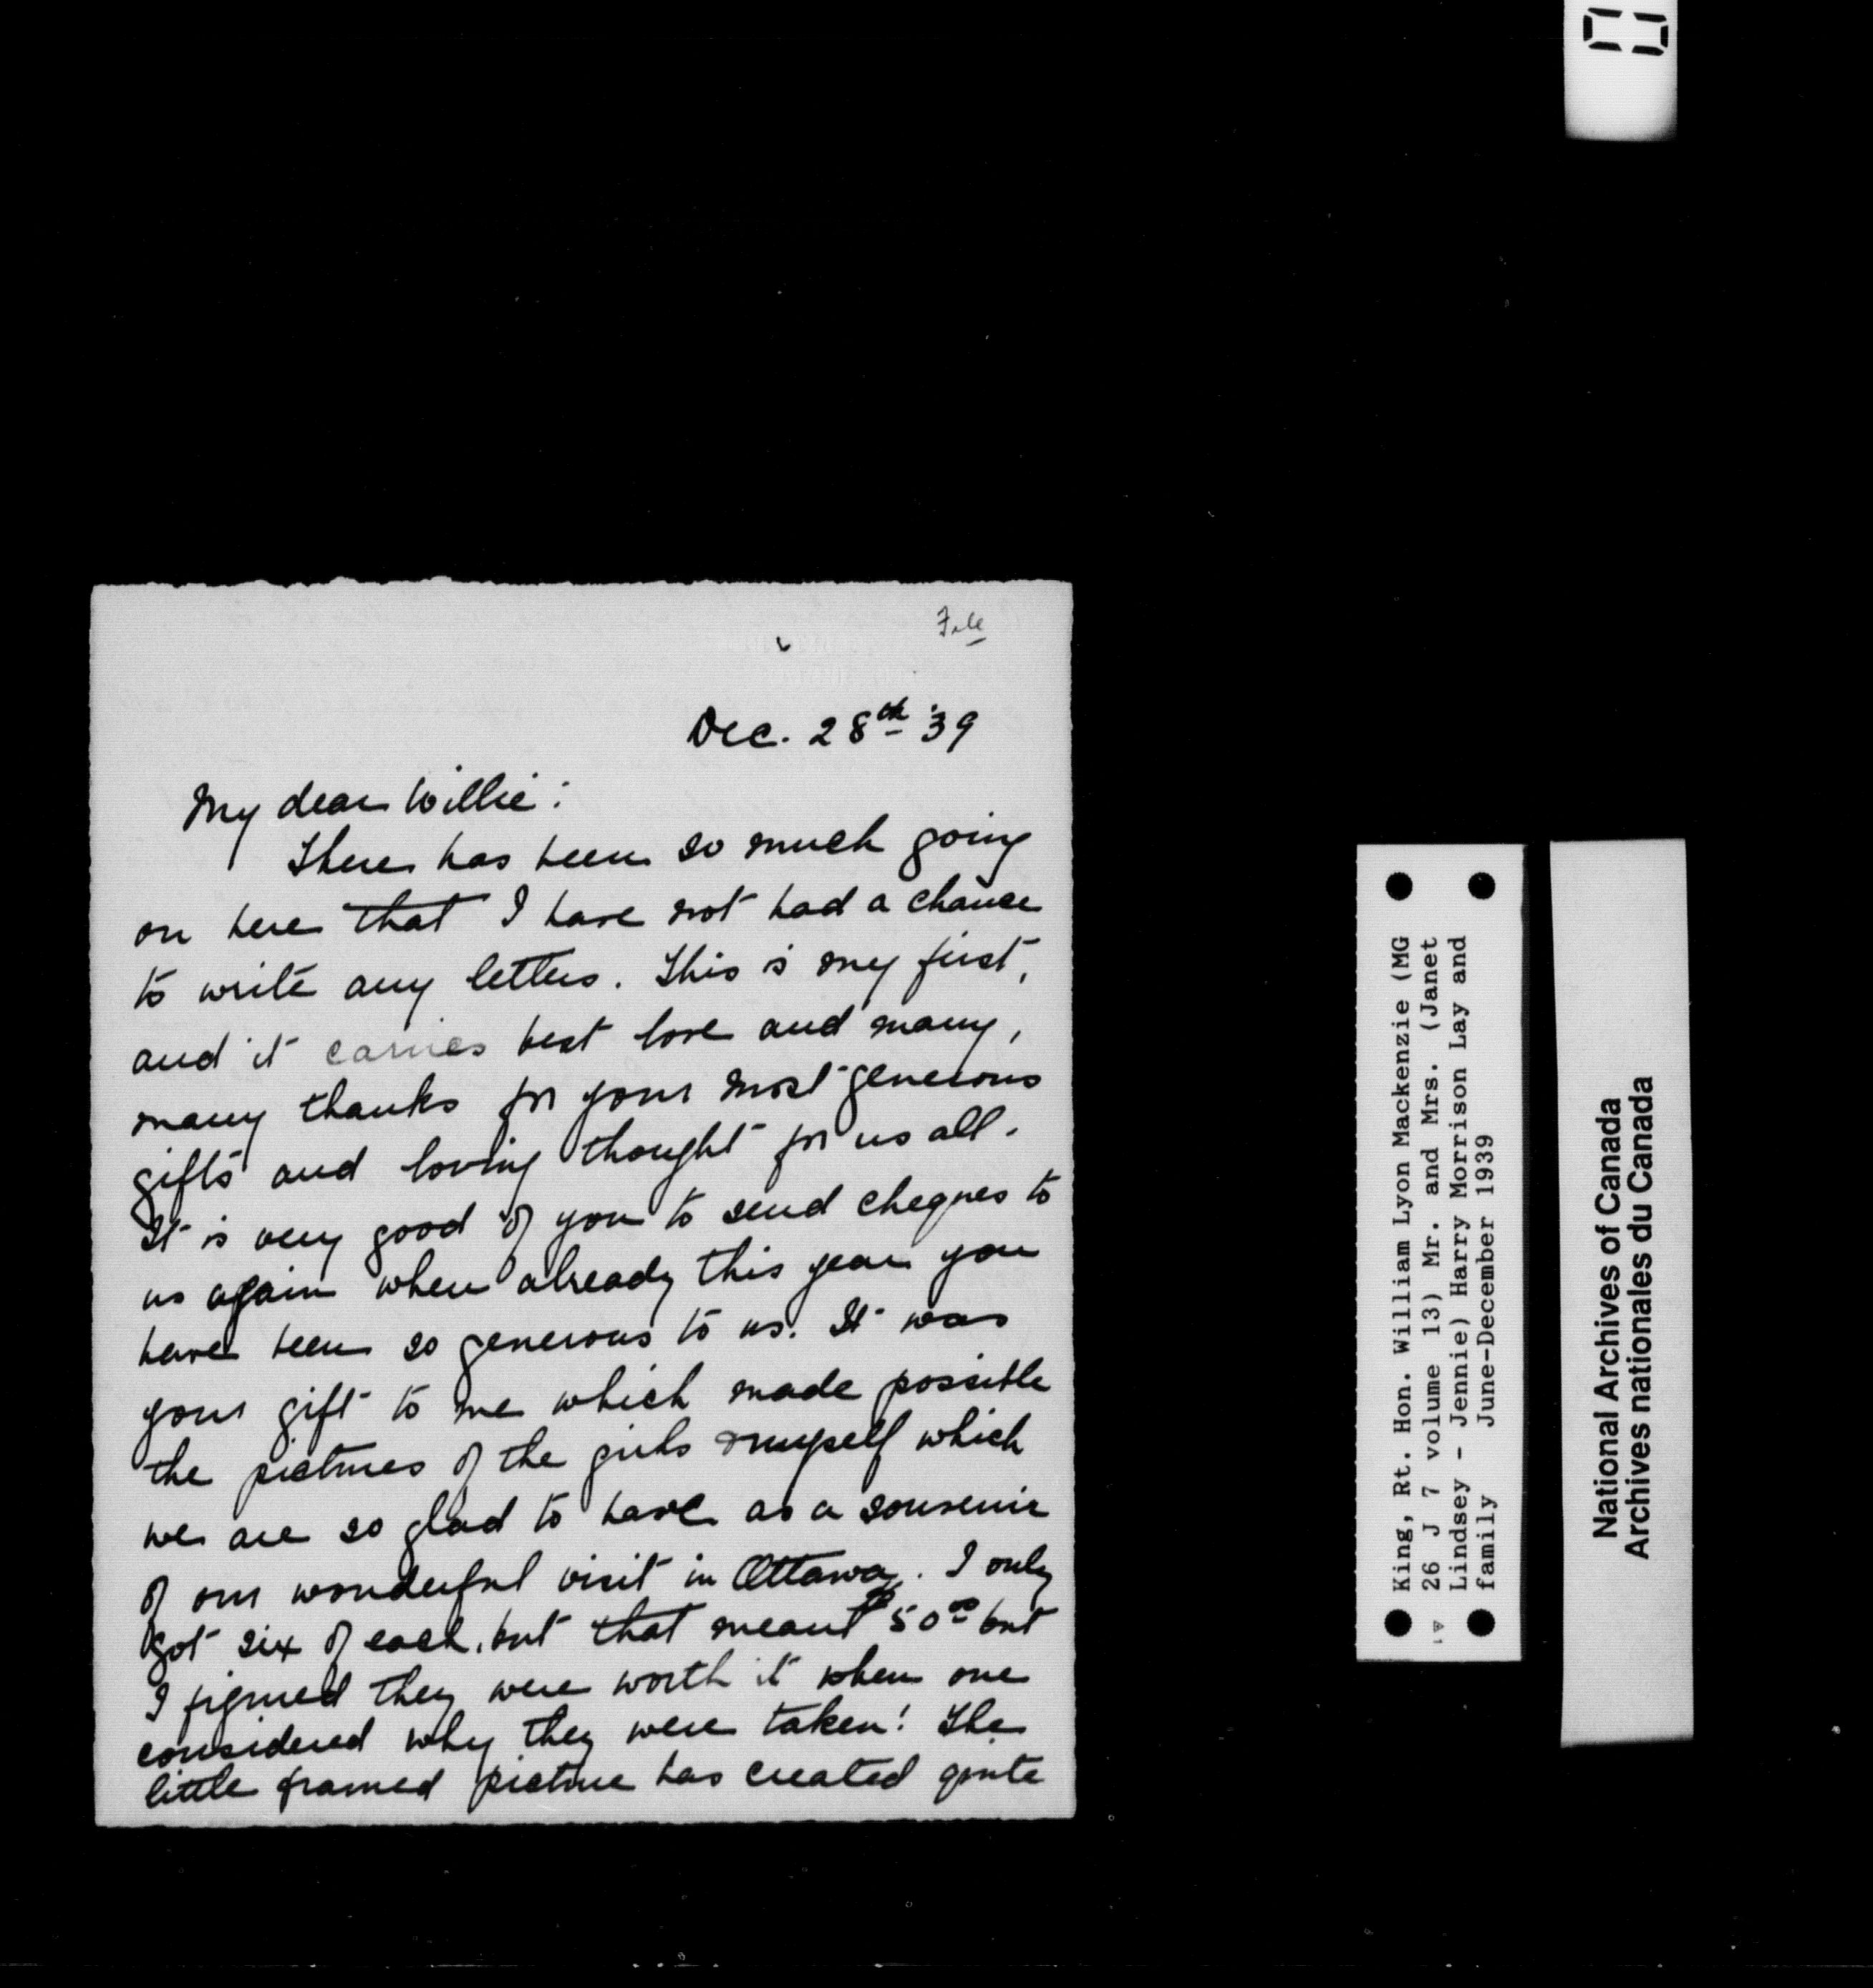 File
Dec. 28th '39
My dear Willie:
There has been so much going
on here that I have not had a chance
to write any letters. This is my first,
and it carries best love and many,
many thanks for your most generous
gifts and loving thought for us all.
It is very good of you to send cheques to
us again when already this year you
have been so generous to us. It was
your gift to me which made possible
the pictures of the girls & myself which
we are so glad to have as a souvenir
of our wonderful visit in Ottawa. I only
got six of each, but that meant $50.00 but
I figured they were worth it when one
considered why they were taken! The
little framed picture has created quite
King, Rt. Hon. William Lyon Mackenzie (MG
26 J 7 volume 13) Mr. and Mrs. (Janet
Lindsey - Jennie) Harry Morrison Lay and
family June-December 1939
National Archives of Canada
Archives nationales du Canada